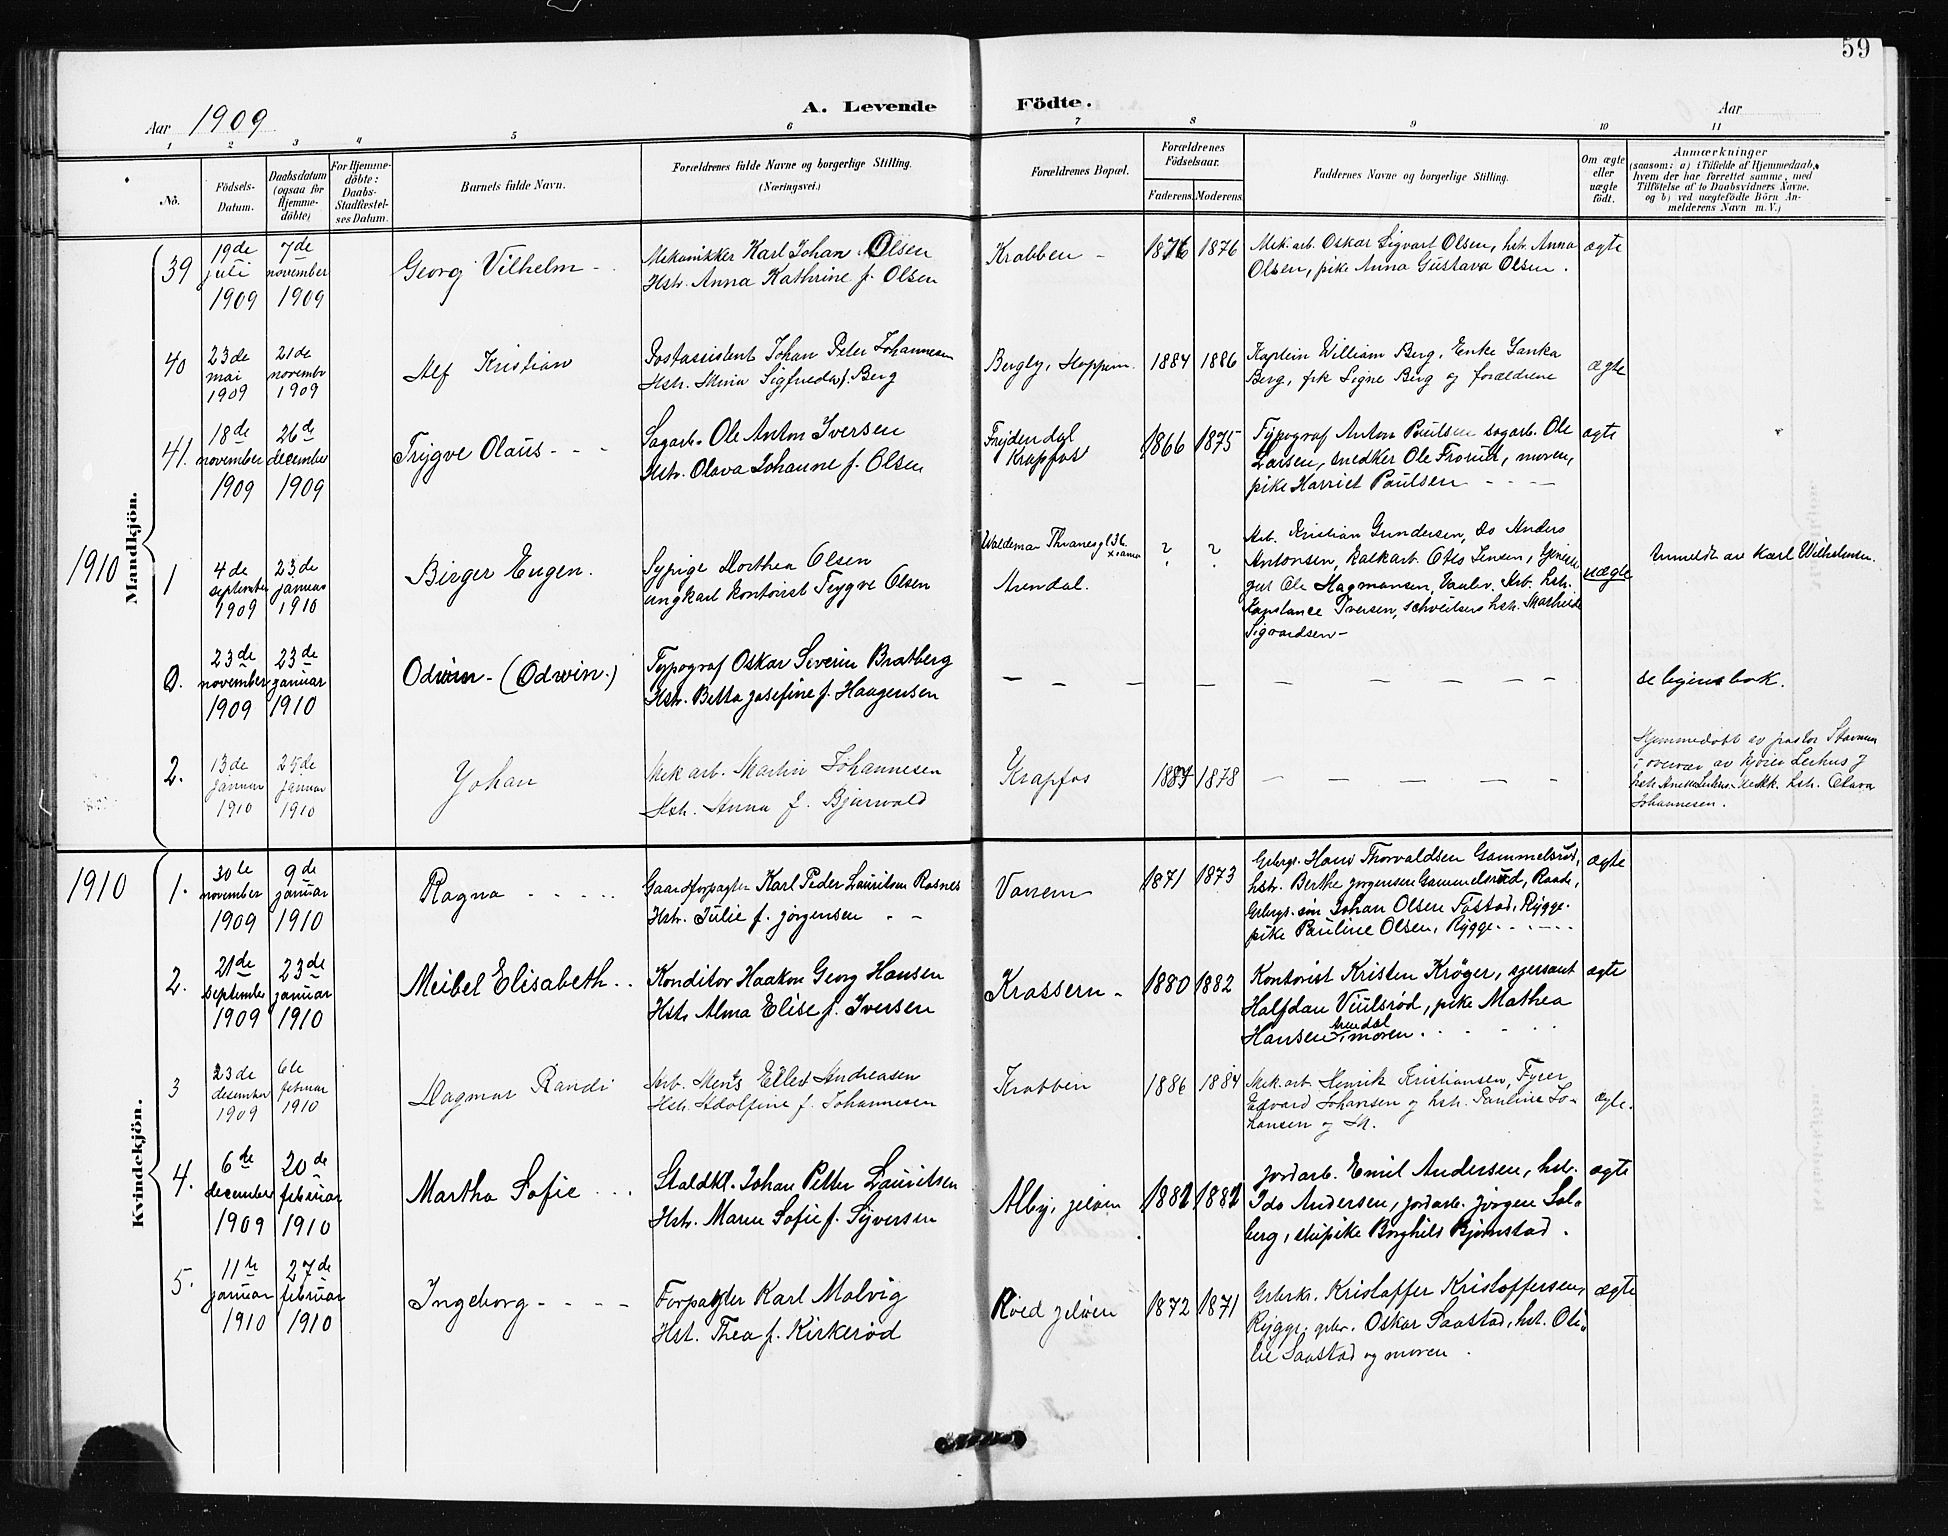 59
A. Levende Födte.
Aar 1909
Aar
1 2 3 4 5 6 7 8 9 10 11
No.
Födsels-Datum.
Daabsdatum (ogsaa for Hjemmedöbte)
For Hjemmedöbte: Daabs-Stadfæstelses Datum.
Barnets fulde Navn.
Forældrenes fulde Navne og borgerlige Stilling.
(Næringsvei.)
Forældrenes Bopæl.
Forældrenes Födselsaar.
Faderens. Moderens.
Faddernes Navne og borgerlige Stilling.
Om ægte eller uægte födt.
Anmærkninger
(saasom: a) i Tilfælde af Hjemmedaab, hvem der har forrettet samme, med Tilföielse af to Daabsvidners Navne, og b) ved uægtefödte Börn Anmelderens Navn m. V.)
Mandkjön.
39
19de juli 1909
7de november 1909
Georg Vilhelm -
Mekanikker Karl Johan Olsen
Hstr. Anna Kathrine f. Olsen
Krabben -
1876 1876
Mek. arb. Oskar Sigvart Olsen, hstr. Anna
Olsen, pike Anna Gustava Olsen.
ægte
40
23de mai 1909
21de novembr 1909
Alf Kristian
Postassistent Johan Peter Johannesen
Hstr. Mina Sigfreda f. Berg
Bergly, Hoppern.
1884 1886
Kaptein William Berg, Enke Janka
Berg, frk Signe Berg og forældrene
ægte
41.
18de november 1909
26de december 1909
Trygve Olaus - - -
Sagarb. Ole Anton Iversen
Hstr. Olava Johanne f. Olsen
Frydendal
Krapfos
1866 1875
Typograf Anton Paulsen sagarb. Ole
Larsen, snedker Ole Frorud, moren,
pike Harriet Paulsen - - - -
ægte
1910
1
4de september 1909
23de januar 1910
Birger Eugen.
Sypige Dorthea Olsen
ungkarl kontorist Trygve Olsen
Waldemar Thranesgt 36
Arendal.
? ?
Arb. Kristian Gundersen, do Anders
Antonsen, kalkarb. Otto Jensen,
gut Ole Hagmansen, Arb. hstr.
Konstance Iversen, hstr. Mathilde
Sigvardsen -
uægte
Anmeldt av Karl Wilhelmsen
0.
23de november 1909
23de januar 1910
Odwin - (Odwin.)
Typograf Oskar Severin Bratberg
Hstr. Betta Josefine f. Haagensen
se byens bok.
2.
13de januar 1910
25de januar 1910
Johan
Mek arb. Martin Johannesen
Hstr. Anna f. Bjurwald
Krapfos
1884 1878
Hjemmedöbt av pastor
i overvær av
hstr. hstr. Olava
Johannesen.
Kvindekjön.
1910
1.
30te november 1909
9de januar 1910
Ragna - - - - -
Gaardforpagter Karl Peder Lauritsen Rosnes
Hstr. Julie f. Jörgensen - -
Vansem
1871 1873
Grbrgs. Hans Thorvaldsen Gammelsrød,
hstr. Berthe Jørgensen Gammelsrød, Raade,
Grbrgs. søn Johan Olsen Tostad, Rygge.
pike Pauline Olsen, Rygge. - - - -
ægte
2.
21de september 1909
23de januar 1910
Meibel Elisabeth . .
Konditor Haakon Georg Hansen
Hstr Alma Elise f. Iversen
Krossern -
1880 1882
Kontorist Kristen Krøger, sjersant
Halfdan Vuulsrød, pike Mathea
Hansen Arendal, moren.
ægte
3
23de desember 1909
6te februar 1910
Dagmar Randi
Arb. Ments Eilert Andreasen
Hstr. Adolfine f. Johannesen
Krabben
1886 1884
Mek arb. Henrik Kristiansen, Fyrer
Edvard Johansen og hstr. Pauline Jo-
hansen og M.
ægte.
4.
6te december 1909
20de februar 1910
Martha Sofie . . .
Staldkl. Johan Petter Lauritsen
Hstr. Maren Sofie f. Syversen
Alby, Jeløen
1882 1882
Jordarb. Emil Andersen, hstr.
Ida Andersen, jordarb. Jörgen Sol-
berg, pike Borghild Bjørnstad.
ægte
5.
11te januar 1910
27de februar 1910
Ingeborg - - - -
Forpagter Karl Molvig
Hst. Thea f. Kirkerød
Røed Jeløen
1872 1871
Grbrkr. Kristoffer Kristoffersen,
Rygge, grbr. Oskar Saastad, hst. Oti-
lie Saastad og moren.
ægte